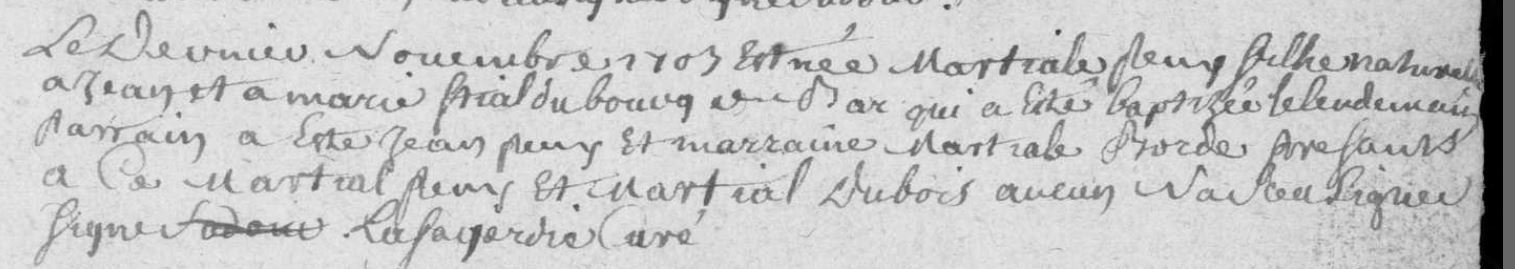 Le Dernier Novembre 1703 Est née Martiale peuy filhe naturelle
a Jean et a marie du bourg de Bar qui a Esté baptizée le lendemain
parrain a Esté Jean peuy Et marraine Martiale Borde presants
a Ce Martial peuy Et Martial Dubois aucun Na sceu signer
signe Curé